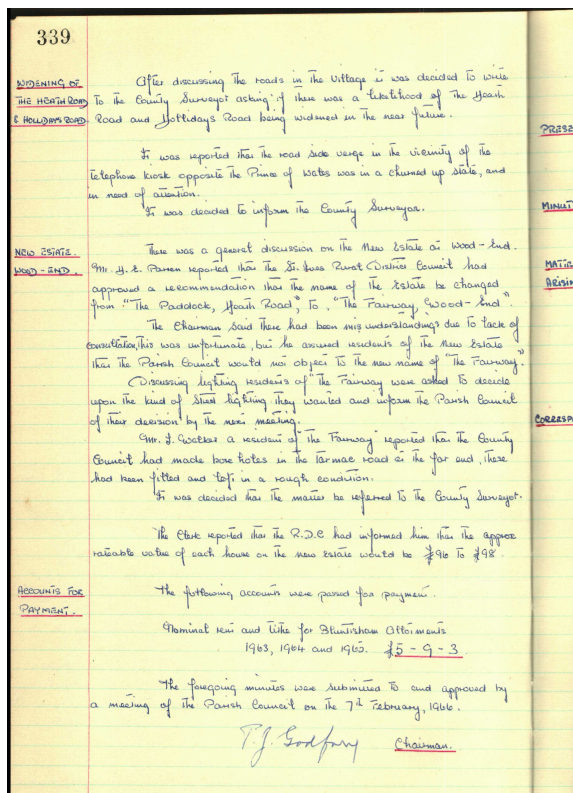 339
WIDENING OF
THE HEATH ROAD
& HOLLIDAYS ROAD
After discussing the roads in the Village it was decided to write
to the County Surveyor asking if there was a likelihood of the Heath
Road and Hollidays Road being widened in the near future.
It was reported that the road side verge in the vicinity of the
telephone kiosk opposite the Prince of Wales was in a churned up state, and
in need of attention.
It was decided to inform the County Surveyor.
NEW ESTATE.
WOOD-END.
There was a general discussion on the New Estate at Wood-End.
Mr. H. E. Parren reported that the St. Ives Rural District Council had
approved a recommendation that the name of the Estate be changed
from "The Paddock, Heath Road", to, "The Fairway, Wood-End."
The Chairman said there had been misunderstandings due to lack of
consultation, this was unfortunate, but he assured residents of the New Estate
that the Parish Council would not object to the new name of "The Fairway."
Discussing lighting residents of "The Fairway were asked to decide
upon the kind of Street lighting they wanted and inform the Parish Council
of their decision by the next meeting.
Mr. J. Walker a resident of "The Fairway" reported that the County
Council had made bore holes in the tarmac road at the far end, these
had been filled and left in a rough condition.
It was decided that the matter be referred to the County Surveyor.
The Clerk reported that the R.D.C had informed him that the approx
rateable value of each house on the new Estate would be £96 to £98.
ACCOUNTS FOR
PAYMENT.
The following accounts were passed for payment.
Nominal rent and tithe for Bluntisham Allotments
1963, 1964 and 1965. £5-9-3
The foregoing minutes were submitted to and approved by
a meeting of the Parish Council on the 7th February, 1966.
T. J. Godfrey Chairman.
PRESE
MINUT
MATTE
ARISIN
CORRESPO